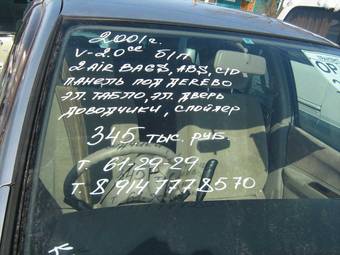 2001г.
V-2.0cc б/п
2 AIR BAGS, ABS, C/D
ПАНЕЛЬ ПОД ДЕРЕВО
ЭЛ. ТАБЛО, ЭЛ. ДВЕРЬ
ДОВОДЧИКИ, СПОЙЛЕР
345 ТЫС. РУБ
Т. 61-29-29
Т. 8 914 777 8570